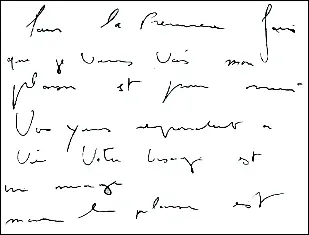 Pour la Première fois
que je vous vois mon
plaisir est pour moi
Vos yeux repondent a
Votre visage est
un
le plaisir est